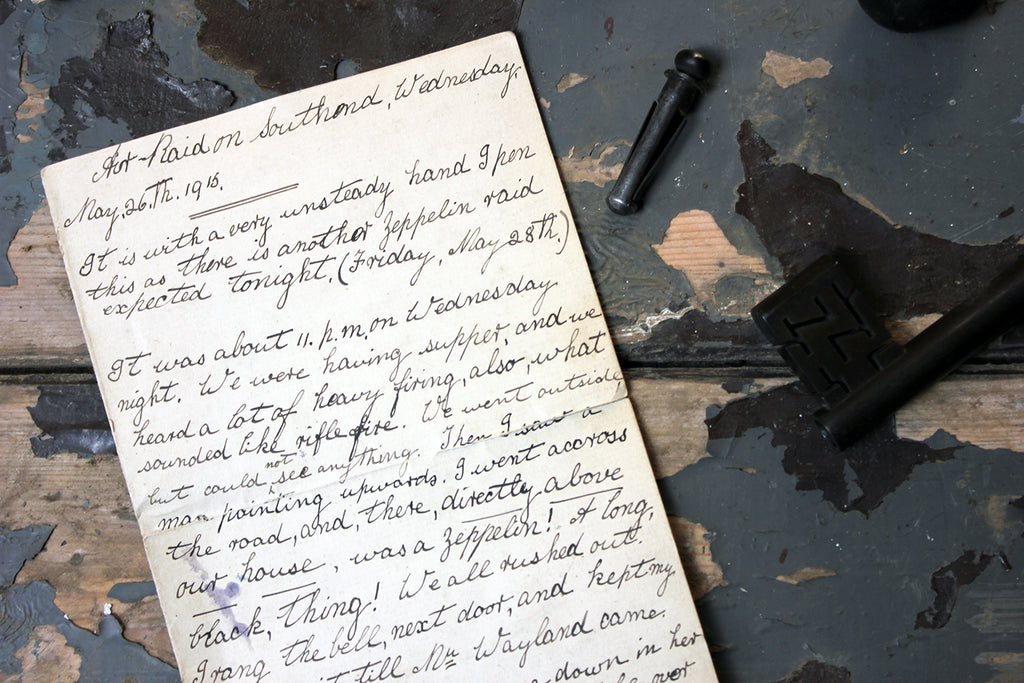 Air-Raid on Southend, Wednesday,
May, 26.Th. 1915.
It is with a very unsteady hand I pen
this as there is another zeppelin raid
expected tonight. (Friday, May 28th.)
It was about 11. p.m. on Wednesday
night. We were having supper, and we
heard a lot of heavy firing, also, what
sounded like rifle fire. We went outside,
but could not see anything. Then I saw a
man pointing upwards. I went accross
the road, and, there, directly above
our house, was a zeppelin! A long,
black, thing! We all rushed out.
I rang the bell, next door, and kept my
till Mrs Wayland came.
down in her
over